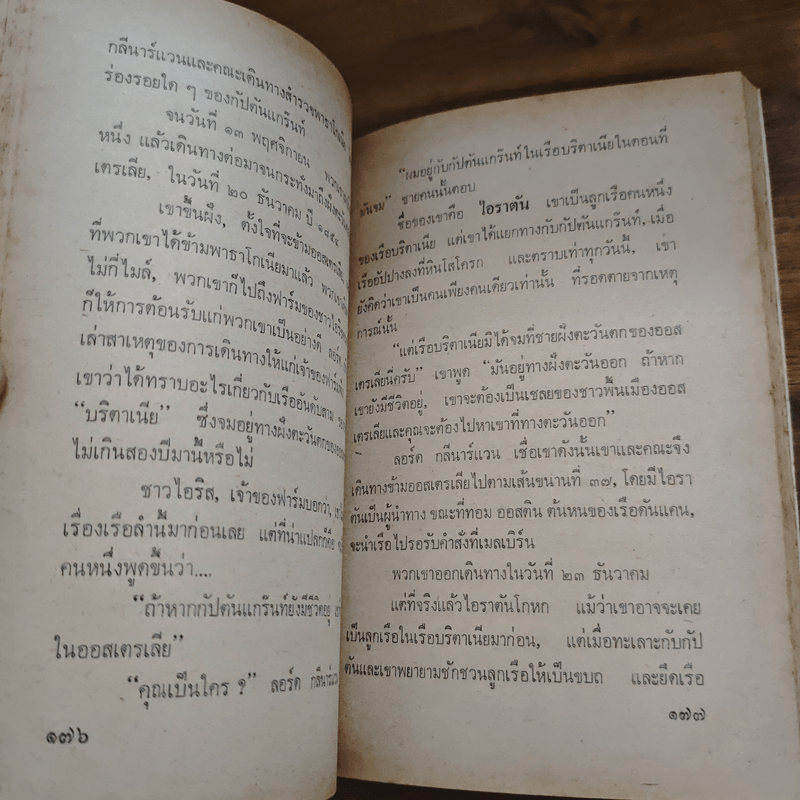 กลีนาร์แวนและคณะเดินทางสำรวจพาธาโกเนีย
ร่องรอยใด ๆ ของกัปตันแกร๊นท์
จนวันที่ ๑๓ พฤศจิกายน
หนึ่ง แล้วเดินทางต่อมาจนกระทั่งมาถึงฝั่งตะวัน
เตรเลีย, ในวันที่ ๒๐ ธันวาคม ปี ๑๘๕๔
เขาขึ้นฝั่ง, ตั้งใจที่จะข้ามออสเตรเลีย
ที่พวกเขาได้ข้ามพาธาโกเนียมาแล้ว
ไม่กี่ไมล์, พวกเขาก็ไปถึงฟาร์มของชาวไอริส
ก็ให้การต้อนรับแก่พวกเขาเป็นอย่างดี ลอร์ด
เล่าสาเหตุของการเดินทางให้แก่เจ้าของฟาร์ม
เขาว่าได้ทราบอะไรเกี่ยวกับเรืออันดับสาม
"บริตาเนีย" ซึ่งจมอยู่ทางฝั่งตะวันตกของ
ไม่เกินสองปีมานี้หรือไม่
ชาวไอริส, เจ้าของฟาร์มบอกว่า,
เรื่องเรือลำนี้มาก่อนเลย แต่ที่น่าแปลกก็คือ
คนหนึ่งพูดขึ้นว่า....
"ถ้าหากกัปตันแกร๊นท์ยังมีชีวิตอยู่
ในออสเตรเลีย"
"คุณเป็นใคร ?" ลอร์ด กลีนาร์แว
๑๗๖
"ผมอยู่กับกัปตันแกร๊นท์ในเรือบริตาเนียในตอนที่
มันจม" ชายคนนั้นตอบ
ชื่อของเขาคือ ไอราตัน เขาเป็นลูกเรือคนหนึ่ง
ของเรือบริตาเนีย แต่เขาได้แยกทางกับกัปตันแกร๊นท์, เมื่อ
เรืออัปปางลงที่หินโสโครก และตราบเท่าทุกวันนี้, เขา
ยังคิดว่าเขาเป็นคนเพียงคนเดียวเท่านั้น ที่รอดตายจากเหตุ
การณ์นั้น
"แต่เรือบริตาเนียมิได้จมที่ชายฝั่งตะวันตกของออส
เตรเลียนี่ครับ" เขาพูด "มันอยู่ทางฝั่งตะวันออก ถ้าหาก
เขายังมีชีวิตอยู่, เขาจะต้องเป็นเชลยของชาวพื้นเมืองออส
เตรเลียและคุณจะต้องไปหาเขาที่ทางตะวันออก"
ลอร์ด กลีนาร์แวน เชื่อเขาดังนั้นเขาและคณะจึง
เดินทางข้ามออสเตรเลียไปตามเส้นขนานที่ ๓๗, โดยมีไอรา
ตันเป็นผู้นำทาง ขณะที่ทอม ออสติน ต้นหนของเรือดันแคน,
จะนำเรือไปรอรับคำสั่งที่เมลเบิร์น
พวกเขาออกเดินทางในวันที่ ๒๓ ธันวาคม
แต่ที่จริงแล้วไอราตันโกหก แม้ว่าเขาอาจจะเคย
เป็นลูกเรือในเรือบริตาเนียมาก่อน, แต่เมื่อทะเลาะกับกัป
ตันและเขาพยายามชักชวนลูกเรือให้เป็นขบถ และยึดเรือ
๑๗๗